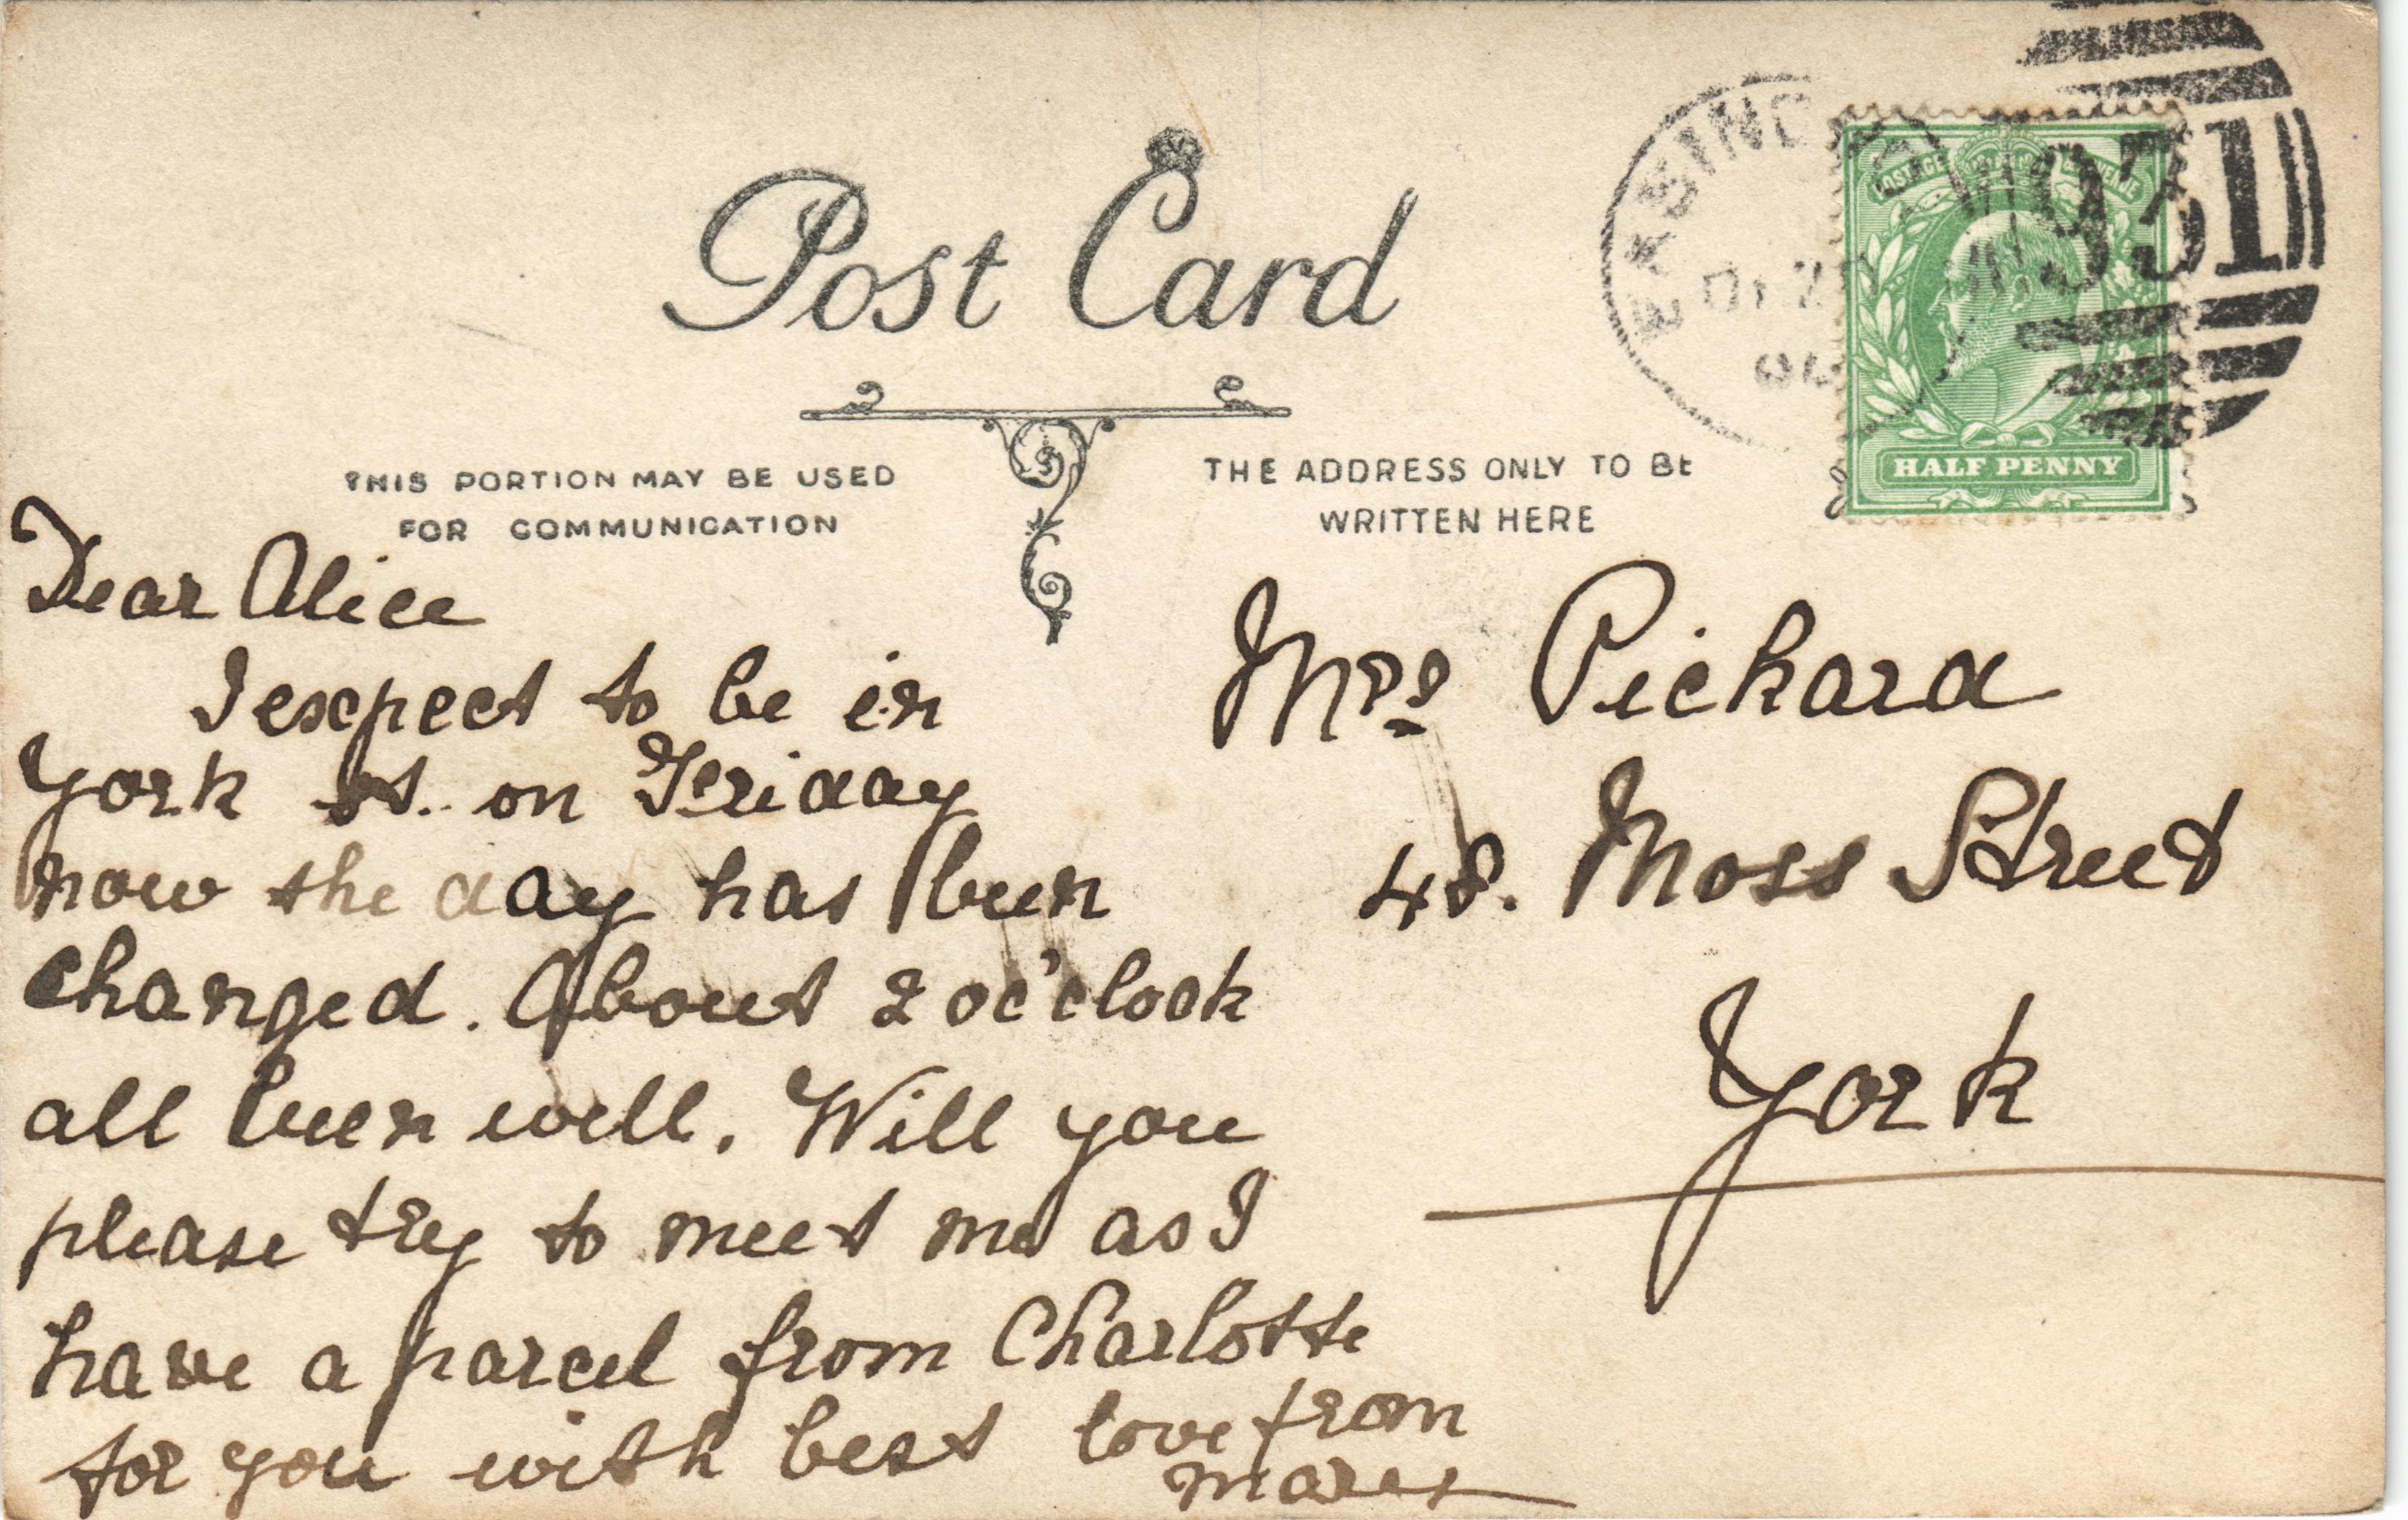 Post Card
THIS PORTION MAY BE USED
FOR COMMUNICATION
THE ADDRESS ONLY TO BE
WRITTEN HERE
EASING
931
POSTAGE REVENUE
HALF PENNY
Dear Alice
I expect to be in
York on Friday
now the day has been
changed. About 2 oc'clock
all been well. Will you
please try to meet me as I
have a parcel from Charlotte
for you with best love from
Mrs Pickard
48. Moss Street
York